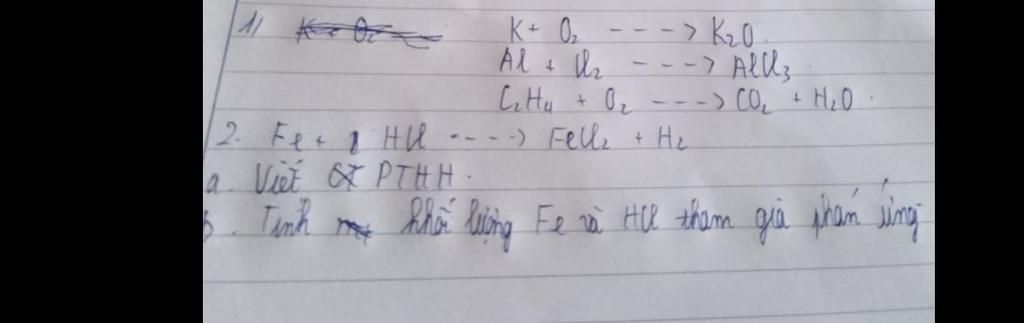 1) K + O2 ---> K2O.
Al + Cl2 ---> AlCl3.
C2H4 + O2 ---> CO2 + H2O.
2. Fe + HCl ----> FeCl2 + H2
a. Viết PTHH.
b. Tính khối lượng Fe và HCl tham gia phản ứng